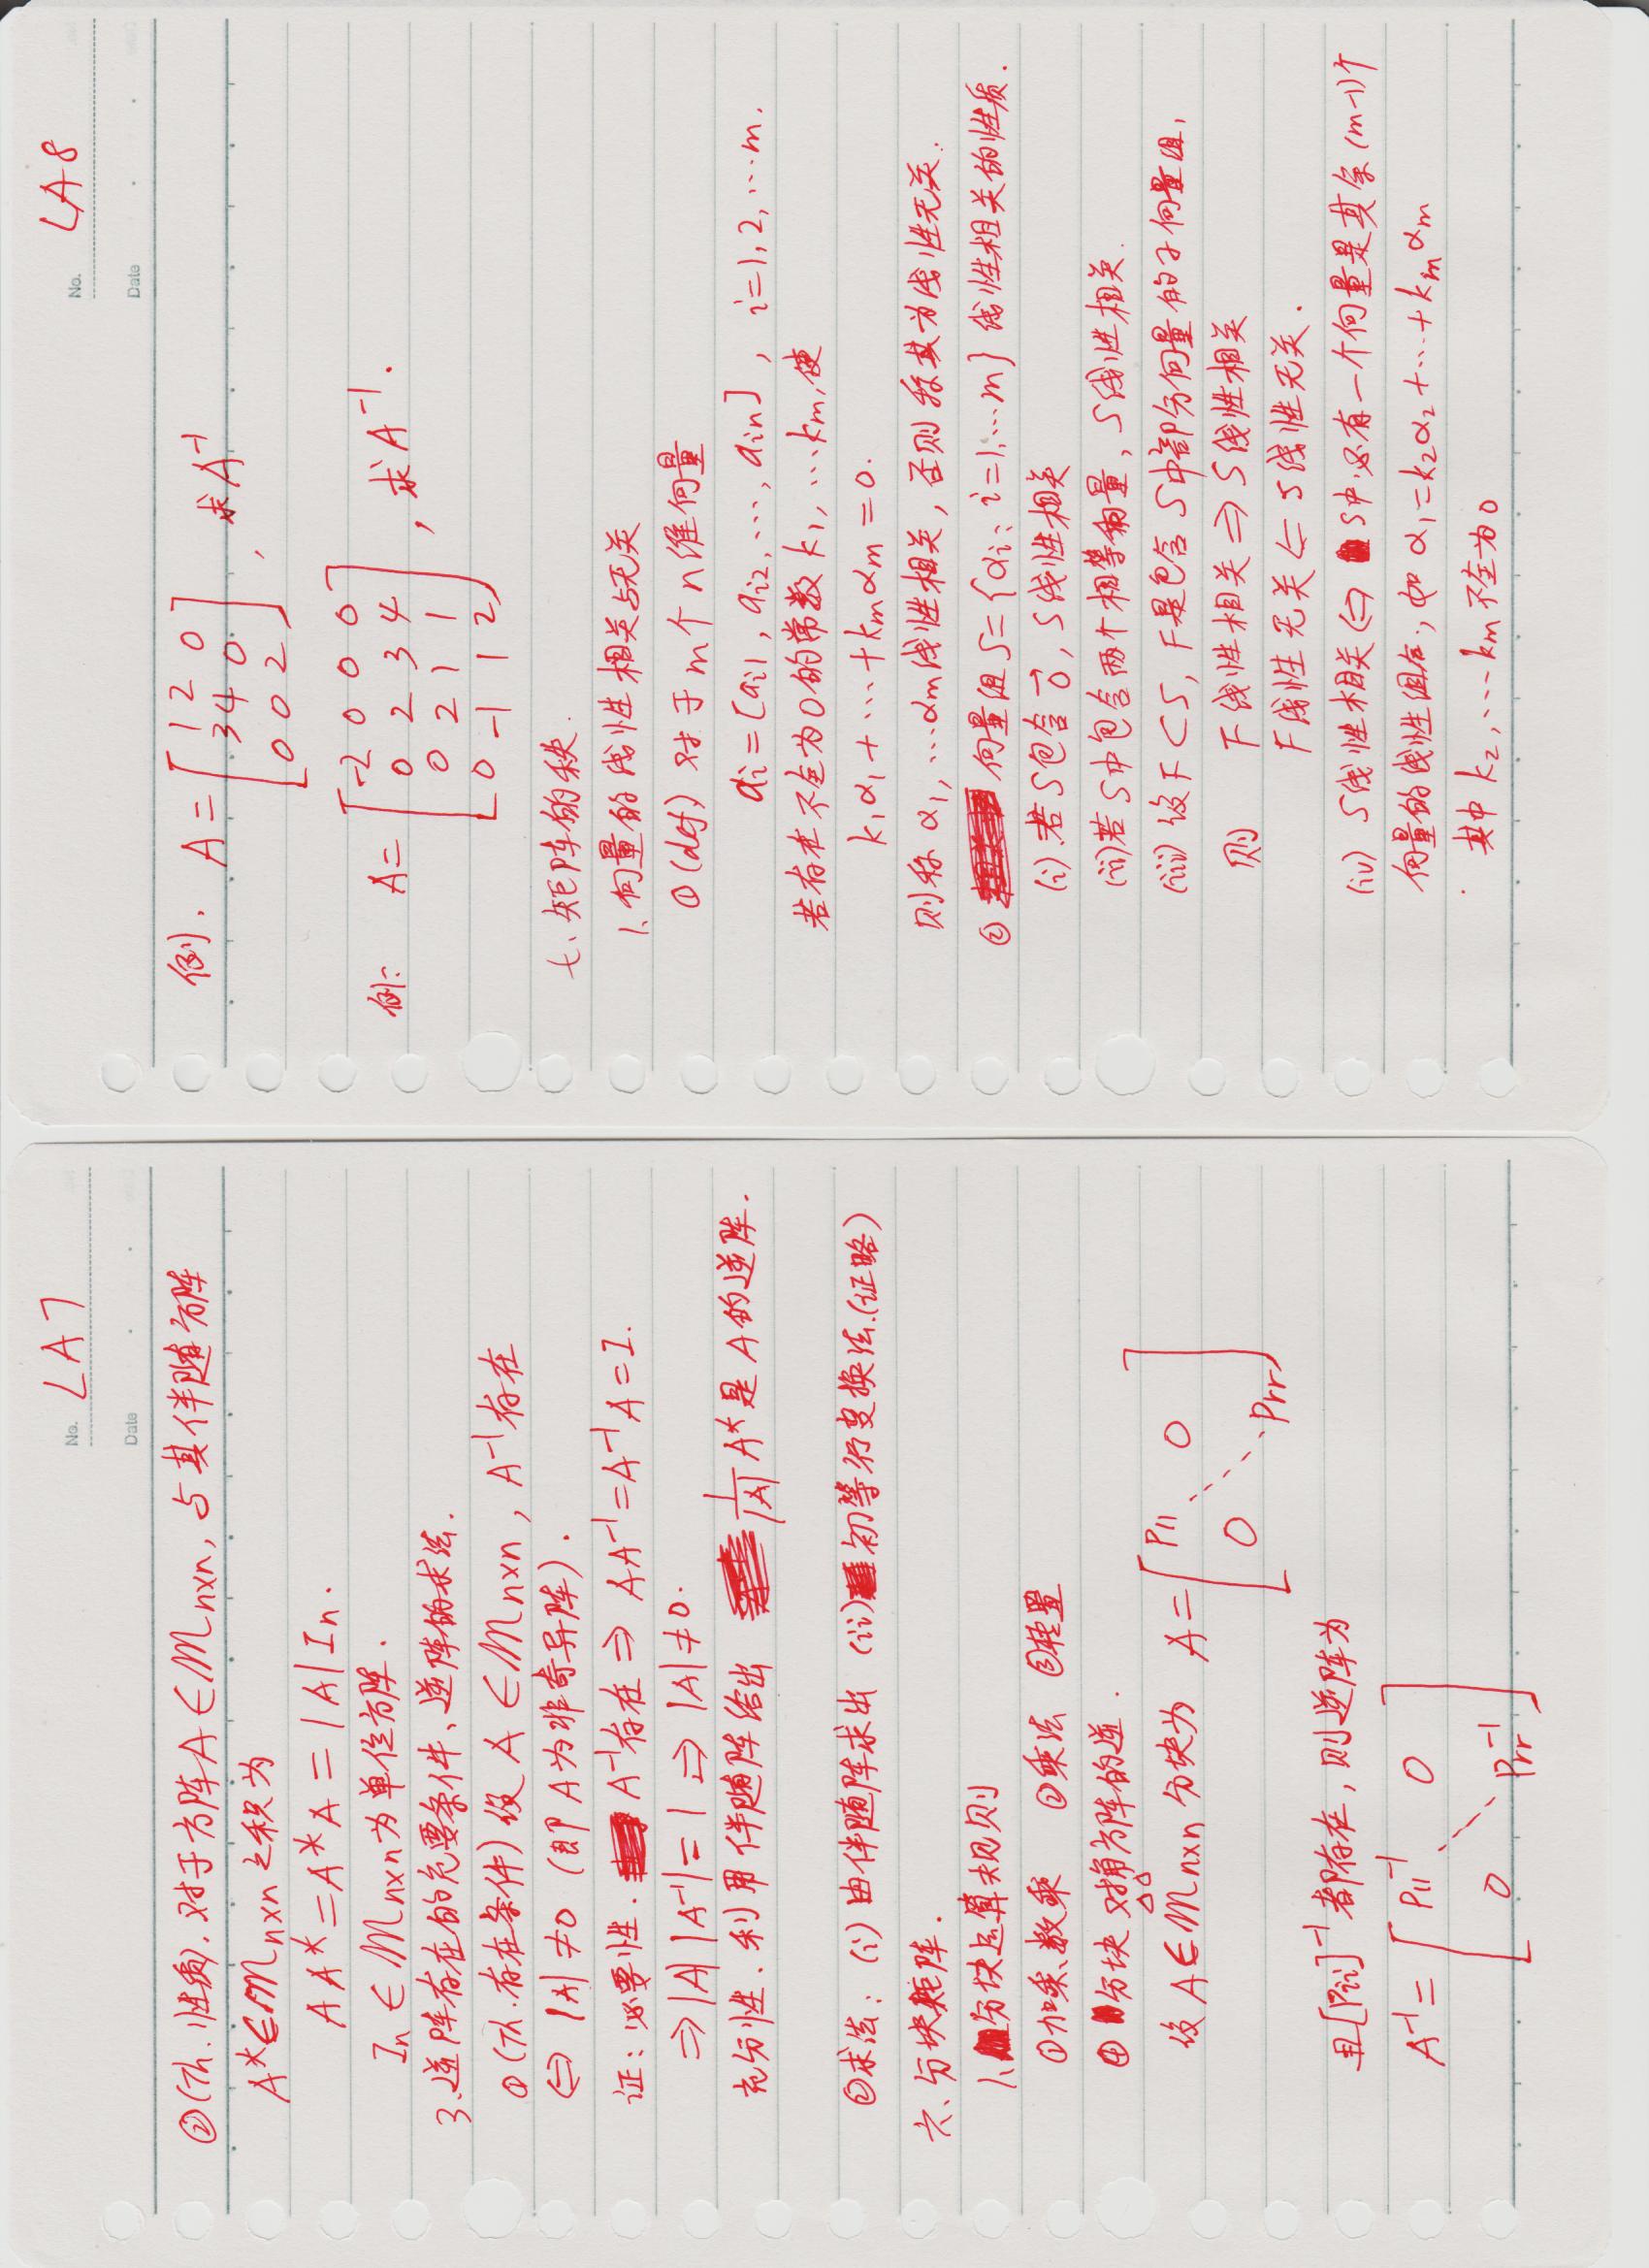 No. LA7
Date
②(Th. 性质). 对于方阵A∈Mn×n, 与其伴随方阵
A*∈Mn×n之积为
AA*=A*A=|A|In.
In∈Mn×n为单位方阵.
3、逆阵存在的充要条件、逆阵的求法.
①(Th.存在条件) 设 A∈Mn×n, A⁻¹存在
⇔ |A|≠0 (即A为非奇异阵).
证: 必要性. A⁻¹存在⇒ AA⁻¹=A⁻¹A=I.
⇒|A||A⁻¹|=1 ⇒ |A|≠0.
充分性. 利用伴随阵给出 1/|A| A*是A的逆阵.
②求法: (i) 由伴随阵求出 (ii) 初等行变换法.(证略)
六、分块矩阵.
1、分块运算规则
①加乘、数乘 ②乘法 ③转置
④ 分块对角方阵的逆.
△△
设A∈Mn×n分块为 A=[P11 0
0 Prr]
且[Pii]⁻¹都存在, 则逆阵为
A⁻¹=[P11⁻¹ 0
0 Prr⁻¹]
No. LA8
Date
例. A=[1 2 0
3 4 0
0 0 2], 求A⁻¹
例: A=[-2 0 0 0
0 2 3 4
0 2 1 1
0 -1 1 2], 求A⁻¹.
七、矩阵的秩.
1、向量的线性相关与无关
①(def) 对于m个n维向量
αi=[ai1, ai2, ⋯, ain], i=1,2,⋯m.
若存在不全为0的常数k1,⋯km,使
k1α1+⋯+kmαm=0.
则称α1,⋯αm线性相关, 否则称其为线性无关.
② 向量组S={αi: i=1,⋯m} 线性相关的性质.
(i).若S包含→0, S线性相关
(ii)若S中包含两个相等向量, S线性相关.
(iii) 设F⊂S, F是包含S中部分向量的子向量组,
则 F线性相关⇒S线性相关
F线性无关⇐S线性无关.
(iv) S线性相关⇔S中必有一个向量是其余(m-1)个
向量的线性组合, 如α1=k2α2+⋯+kmαm
其中k2,⋯km不全为0